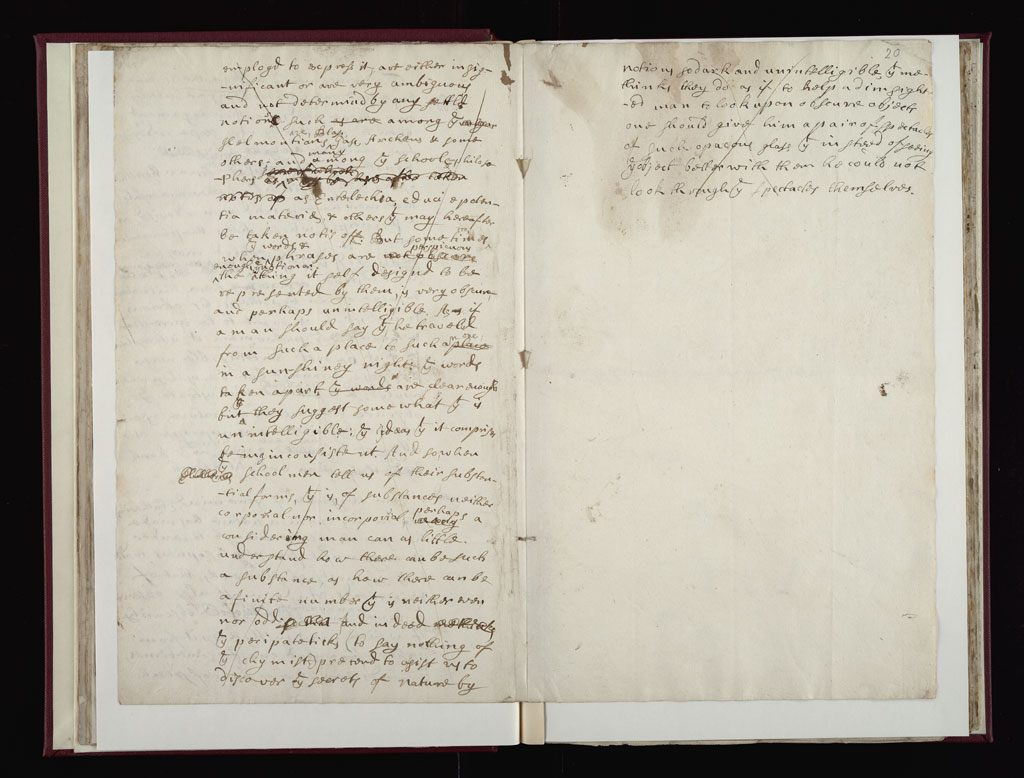 employd to express it, are either insig-
-nificant or are very ambiguous
and not determind by any setld
notion such as are among ye
are, Blas,
Helmontians Gas, Archeus & some
many
others, and among ye schoole philoso-
phers
as Entelechia, educi e poten-
tia materiæ, & others yt may hereafter
be taken notis off. But some times
ye words & perspicuous
when phrases are not obscure
enough notion or
the thing it self designd to be
represented by them, is very obscure
and perhaps unintelligible. As if
a man should say yt he traveld
from such a place to such a place
in a sun-shiney night, ye words
taken apart, ye words are clear enough
but they suggest somewhat yt is
unintelligible; ye ideas yt it comprises
being inconsistent. And so when
ye school men tell us of their substan-
-tial forms, yt is, of substances neither
corporial nor incorporial, perhaps a
considering man can as little
understand how there can be such
a substance, as how there can be
a finite number yt is neither even
nor odd: and indeed
ye peripateticks (to say nothing of
ye chymists) pretend to assist us to
discover ye secrets of nature by
20
notions so dark and unintelligible, yt me-
thinks they do as if to help a dim sight-
-ed man to look upon obscure objects
one should give him a pair of spectacles
of such opacous glass yt in steed of seeing
ye object better with them he could not
look through ye spectacles themselves.